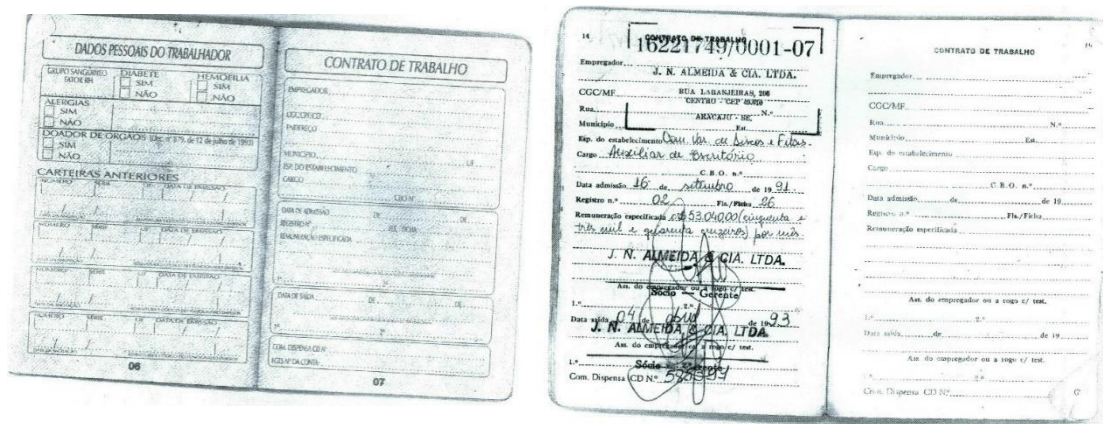 DADOS PESSOAIS DO TRABALHADOR
GRUPO SANGUÍNEO
FATOR RH
DIABETE
SIM
NÃO
HEMOFILIA
SIM
NÃO
ALERGIAS
SIM
NÃO
DOADOR DE ÓRGÃOS (Dec. nº 879, de 12 de julho de 1993)
SIM
NÃO
CARTEIRAS ANTERIORES
NÚMERO SÉRIE UF DATA DE EMISSÃO
NÚMERO SÉRIE UF DATA DE EMISSÃO
NÚMERO SÉRIE UF DATA DE EMISSÃO
NÚMERO SÉRIE UF DATA DE EMISSÃO
06
CONTRATO DE TRABALHO
EMPREGADOR
ENDEREÇO
MUNICÍPIO UF
ESP. DO ESTABELECIMENTO
CARGO
CBO Nº
DATA DE ADMISSÃO DE DE
REGISTRO Nº FLS./FICHA
REMUNERAÇÃO ESPECIFICADA
DATA DE SAÍDA DE DE
COM. DISPENSA CD Nº
FGTS Nº DA CONTA
07
16 CONTRATO DE TRABALHO
16221749/0001-07
Empregador
J. N. ALMEIDA & CIA. LTDA.
CGC/MF RUA LARANJEIRAS, 206
CENTRO - CEP
Rua N.º
ARACAJU - SE.
Município Est.
Esp. do estabelecimento Com. Var. de Discos e Fitas.
Cargo Auxiliar de Escritório
C. B. O. n.º
Data admissão 16 de setembro de 19 91
Registro n.º 02 Fls./Ficha 26
Remuneração especificada 53.040,00 (cinquenta e
três mil e quarenta cruzeiros) por mês.
J. N. ALMEIDA & CIA. LTDA.
Ass. do empregador ou a rogo c/ test.
Sócio - Gerente
1.º 2.º
Data saída 04 de abril de 19 93
J. N. ALMEIDA & CIA. LTDA.
Ass. do empregador ou a rogo c/ test.
1.º Sócio
Com. Dispensa CD N.º
CONTRATO DE TRABALHO
Empregador
CGC/MF
Rua N.º
Município Est.
Esp. do estabelecimento
Cargo
C. B. O. n.º
Data admissão de de 19
Registro n.º Fls./Ficha
Remuneração especificada
Ass. do empregador ou a rogo c/ test.
1.º 2.º
Data saída de de 19
Ass. do empregador ou a rogo c/ test.
2.º
Com. Dispensa CD N.º